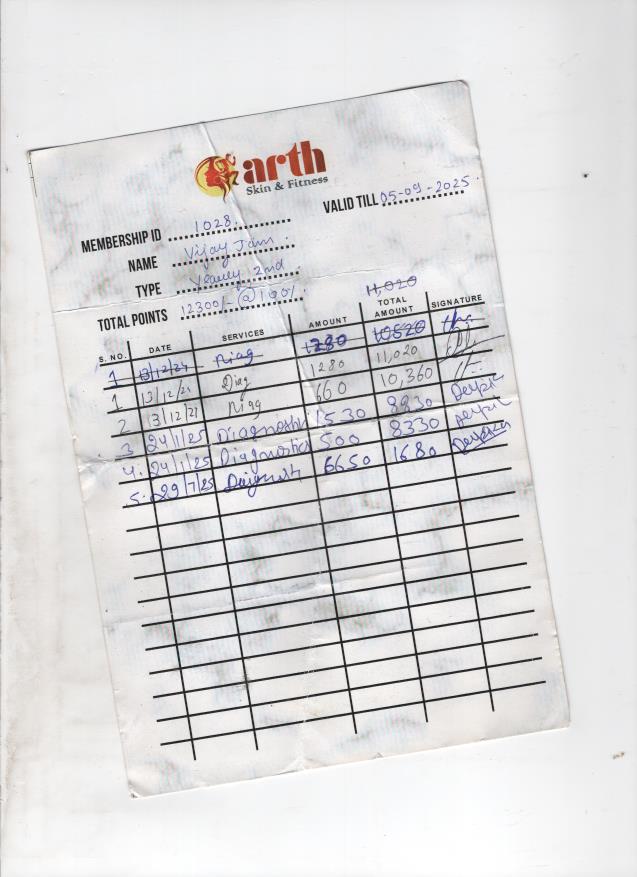 arth
Skin & Fitness
VALID TILL 05-09-2025
MEMBERSHIP ID 1028
NAME Vijay Jain
TYPE Yearly 2nd
TOTAL POINTS 12300/- @ 100/.
11,020
S. NO. DATE SERVICES AMOUNT TOTAL AMOUNT SIGNATURE
1 13/12/24 Diag 1280 10520
1 13/12/21 Diag 1280 11,020
2 13/12/21 Diag 660 10,360
3 24/1/25 Diagnostic 1530 8830 Deepti
4. 24/1/25 Diagnostics 500 8330 Deepti
5. 29/7/25 Daignosti 6650 1680